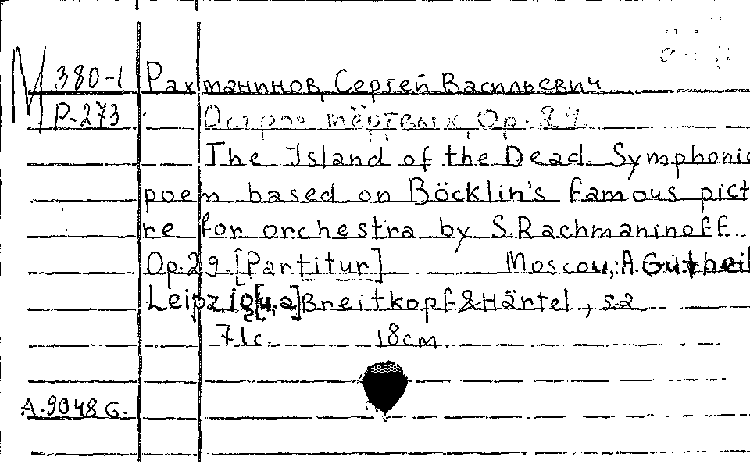 М 380-1 Рахманинов, Сергей Васильевич
Р-273 Остров мёртвых, Op. 29
The Island of the Dead. Symphonic
poem based on Böcklin's famous pict
re for orchestra by S. Rachmaninoff.
Op. 29. [Partitur] Moscou, A. Gutheil
Leipzig [u.a] Breitkopf & Härtel, sa
71c. 18cm.
A.9048G.